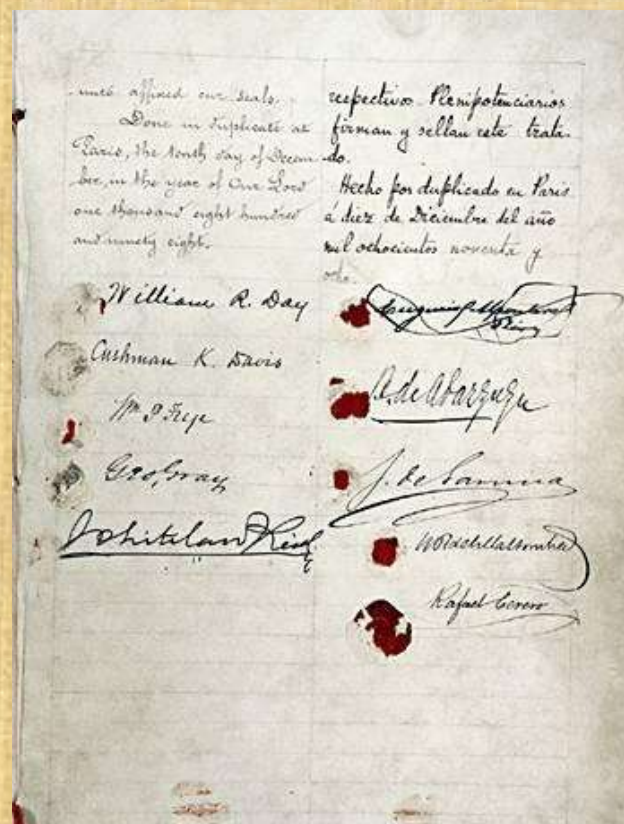 unto affixed our seals.
Done in duplicate at
Paris, the tenth day of Decem-
ber, in the year of Our Lord
one thousand eight hundred
and ninety eight.
William R. Day
Cushman K. Davis
Wm P Frye
Geo, Gray
Whitelaw Reid
respectivos Plenipotenciarios
firman y sellan este trata-
do.
Hecho por duplicado en Paris
á diez de Diciembre del año
mil ochocientos noventa y
ocho.
B. de Abarzuza
J. de Garnica
W R de Villa Urrutia
Rafael Cerero